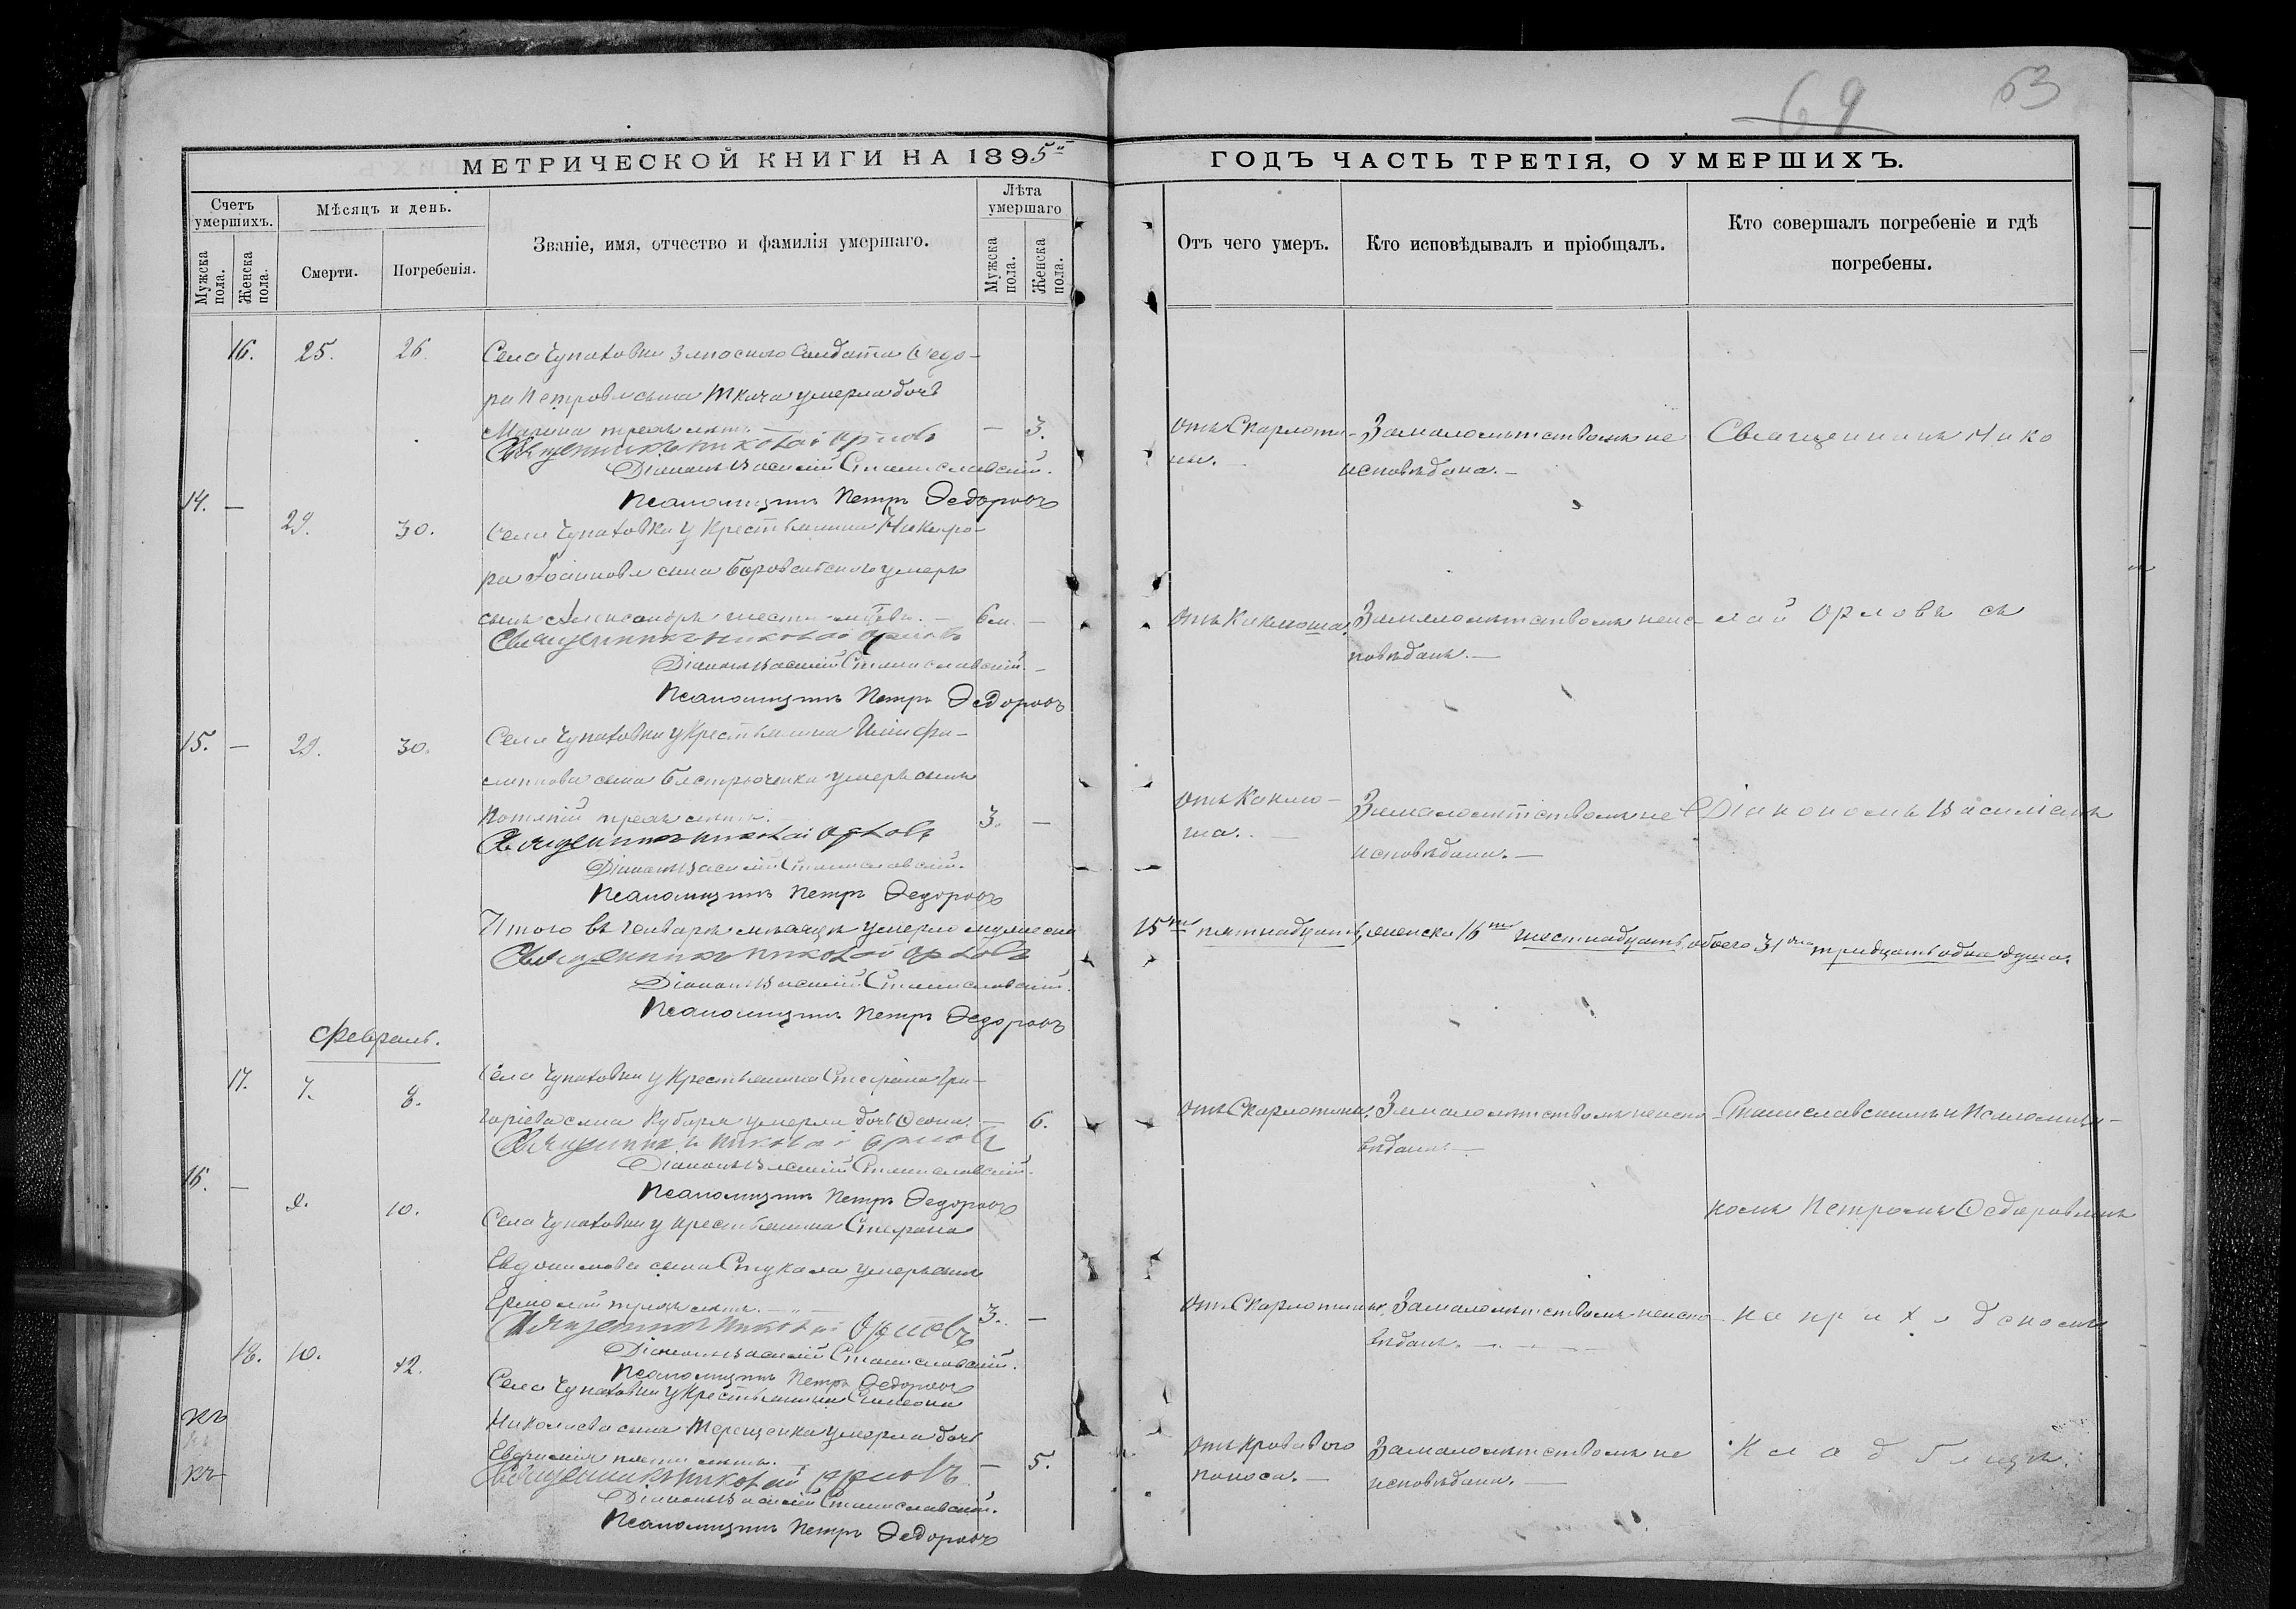 69 63
МЕТРИЧЕСКОЙ КНИГИ НА 1895й
Счетъ умершихъ.
Мужска пола.
Женска пола.
Мѣсяцъ и день.
Смерти.
Погребенія.
Званіе, имя, отчество и фамилія умершаго.
Лѣта умершаго
Мужска пола.
Женска пола.
16. 25. 26. Села Чупаховки запаснаго Солдата Ѳедо-
ра Петрова сына Ткача умерла дочь
Марина трехъ лѣтъ. — — 3.
Священникъ Николай Орловъ
Діаконъ Василій Станиславскій.
Псаломщикъ Петръ Ѳедоровъ
14. — 29. 30. Села Чупаховки у Крестьянина Никифо-
ра Іоаннова сына Боровенского умеръ
сынъ Александръ шести мѣсяц. — 6 м. —
Священникъ Николай Орловъ
Діаконъ Василій Станиславскій. —
Псаломщикъ Петръ Ѳедоровъ
15. — 29. 30. Села Чупаховки у Крестьянина
сына умеръ сынъ
трехъ лѣтъ. 3. —
Священникъ Николай Орловъ
Діаконъ Василій Станиславскій.
Псаломщикъ Петръ Ѳедоровъ
Итого въ Генварѣ мѣсяцѣ умерло мужеска
Священникъ Николай Орловъ
Діаконъ Василій Станиславскій.
Псаломщикъ Петръ Ѳедоровъ
Февраль.
17. 7. 8. Села Чупаховки у Крестьянина Стефана Гри-
горіева сына Кубаря умерла дочь — 6.
Священникъ Николай Орловъ
Діаконъ Василій Станиславскій.
Псаломщикъ Петръ Ѳедоровъ
16. — 9. 10. Села Чупаховки у Крестьянина Стефана
Евдокимова сына Стукала умеръ сынъ
Ермолай трехъ лѣтъ. — 3. —
Священникъ Николай Орловъ
Діаконъ Василій Станиславскій.
Псаломщикъ Петръ Ѳедоровъ
18. 10. 12. Села Чупаховки у Крестьянина Симеона
Николаева сына Терещенка умерла дочь
Евфимія пяти лѣтъ. — 5.
Священникъ Николай Орловъ
Діаконъ Василій Станиславскій.
Псаломщикъ Петръ Ѳедоровъ
ГОДЪ ЧАСТЬ ТРЕТІЯ, О УМЕРШИХЪ.
Отъ чего умеръ.
Кто исповѣдывалъ и пріобщалъ.
Кто совершалъ погребеніе и гдѣ погребены.
Отъ Скарлоти- За малолѣтствомъ не Священникъ Нико
ны. — исповѣдана. —
Отъ Каклюша. За малолѣтствомъ неис- лай Орловъ съ
повѣданъ. —
Отъ Каклю- За малолѣтствомъ не Діакономъ Василіемъ
ша. — исповѣданъ. —
15ть пятнадцать, женска 16ть шестнадцать, обоего 31на тридцать одна душа.
Отъ Скарлотины. За малолѣтствомъ неиспо- Станиславскимъ и Псаломщи-
вѣдана. —
комъ Петромъ Ѳедоровымъ
Отъ Скарлотины. За малолѣтствомъ неиспо- на приходскомъ
вѣданъ. —
Отъ кроваваго За малолѣтствомъ не Кладбищѣ.
поноса. — исповѣдана. —